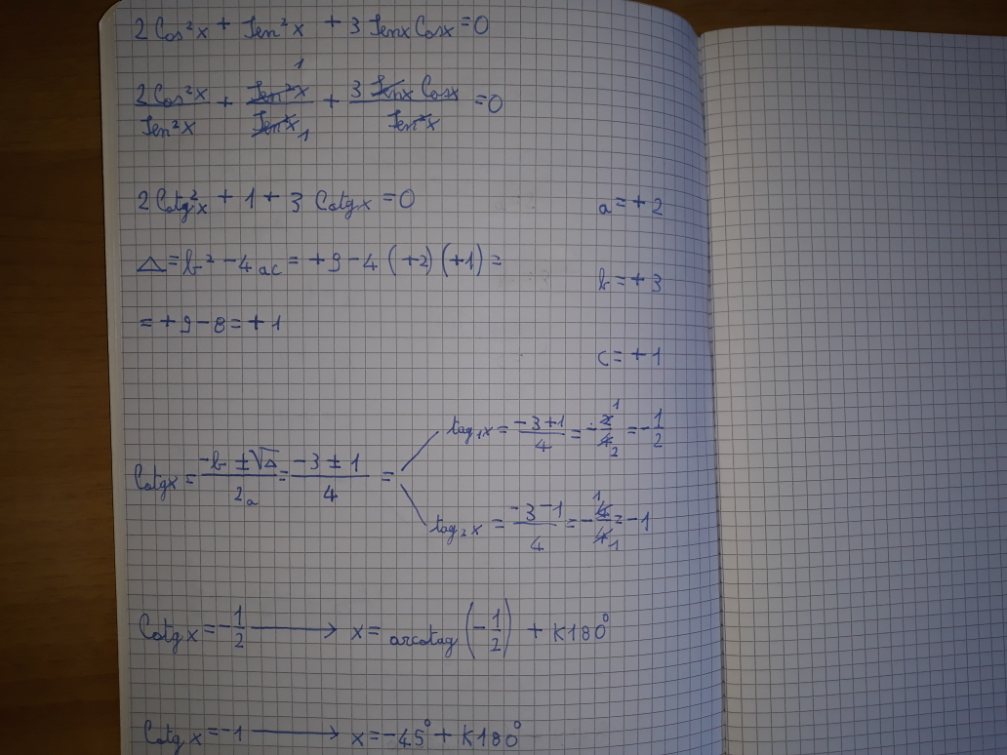 2 Cos²x + Sen²x + 3 Senx Cosx = 0
2 Cos²x / Sen²x + Sen²x / Sen²x + 3 Senx Cosx / Sen²x = 0
2 Cotg²x + 1 + 3 Cotgx = 0
a = + 2
Δ = b² - 4ac = + 9 - 4 (+2) (+1) =
b = + 3
= + 9 - 8 = + 1
c = + 1
tag₁x = -3+1 / 4 = - 2/4 = - 1/2
Cotgx = -b ± √Δ / 2a = -3 ± 1 / 4 =
tag₂x = -3-1 / 4 = - 4/4 = -1
Cotgx = - 1/2 → x = arcotag (- 1/2) + K180°
Cotgx = -1 → x = -45° + K180°